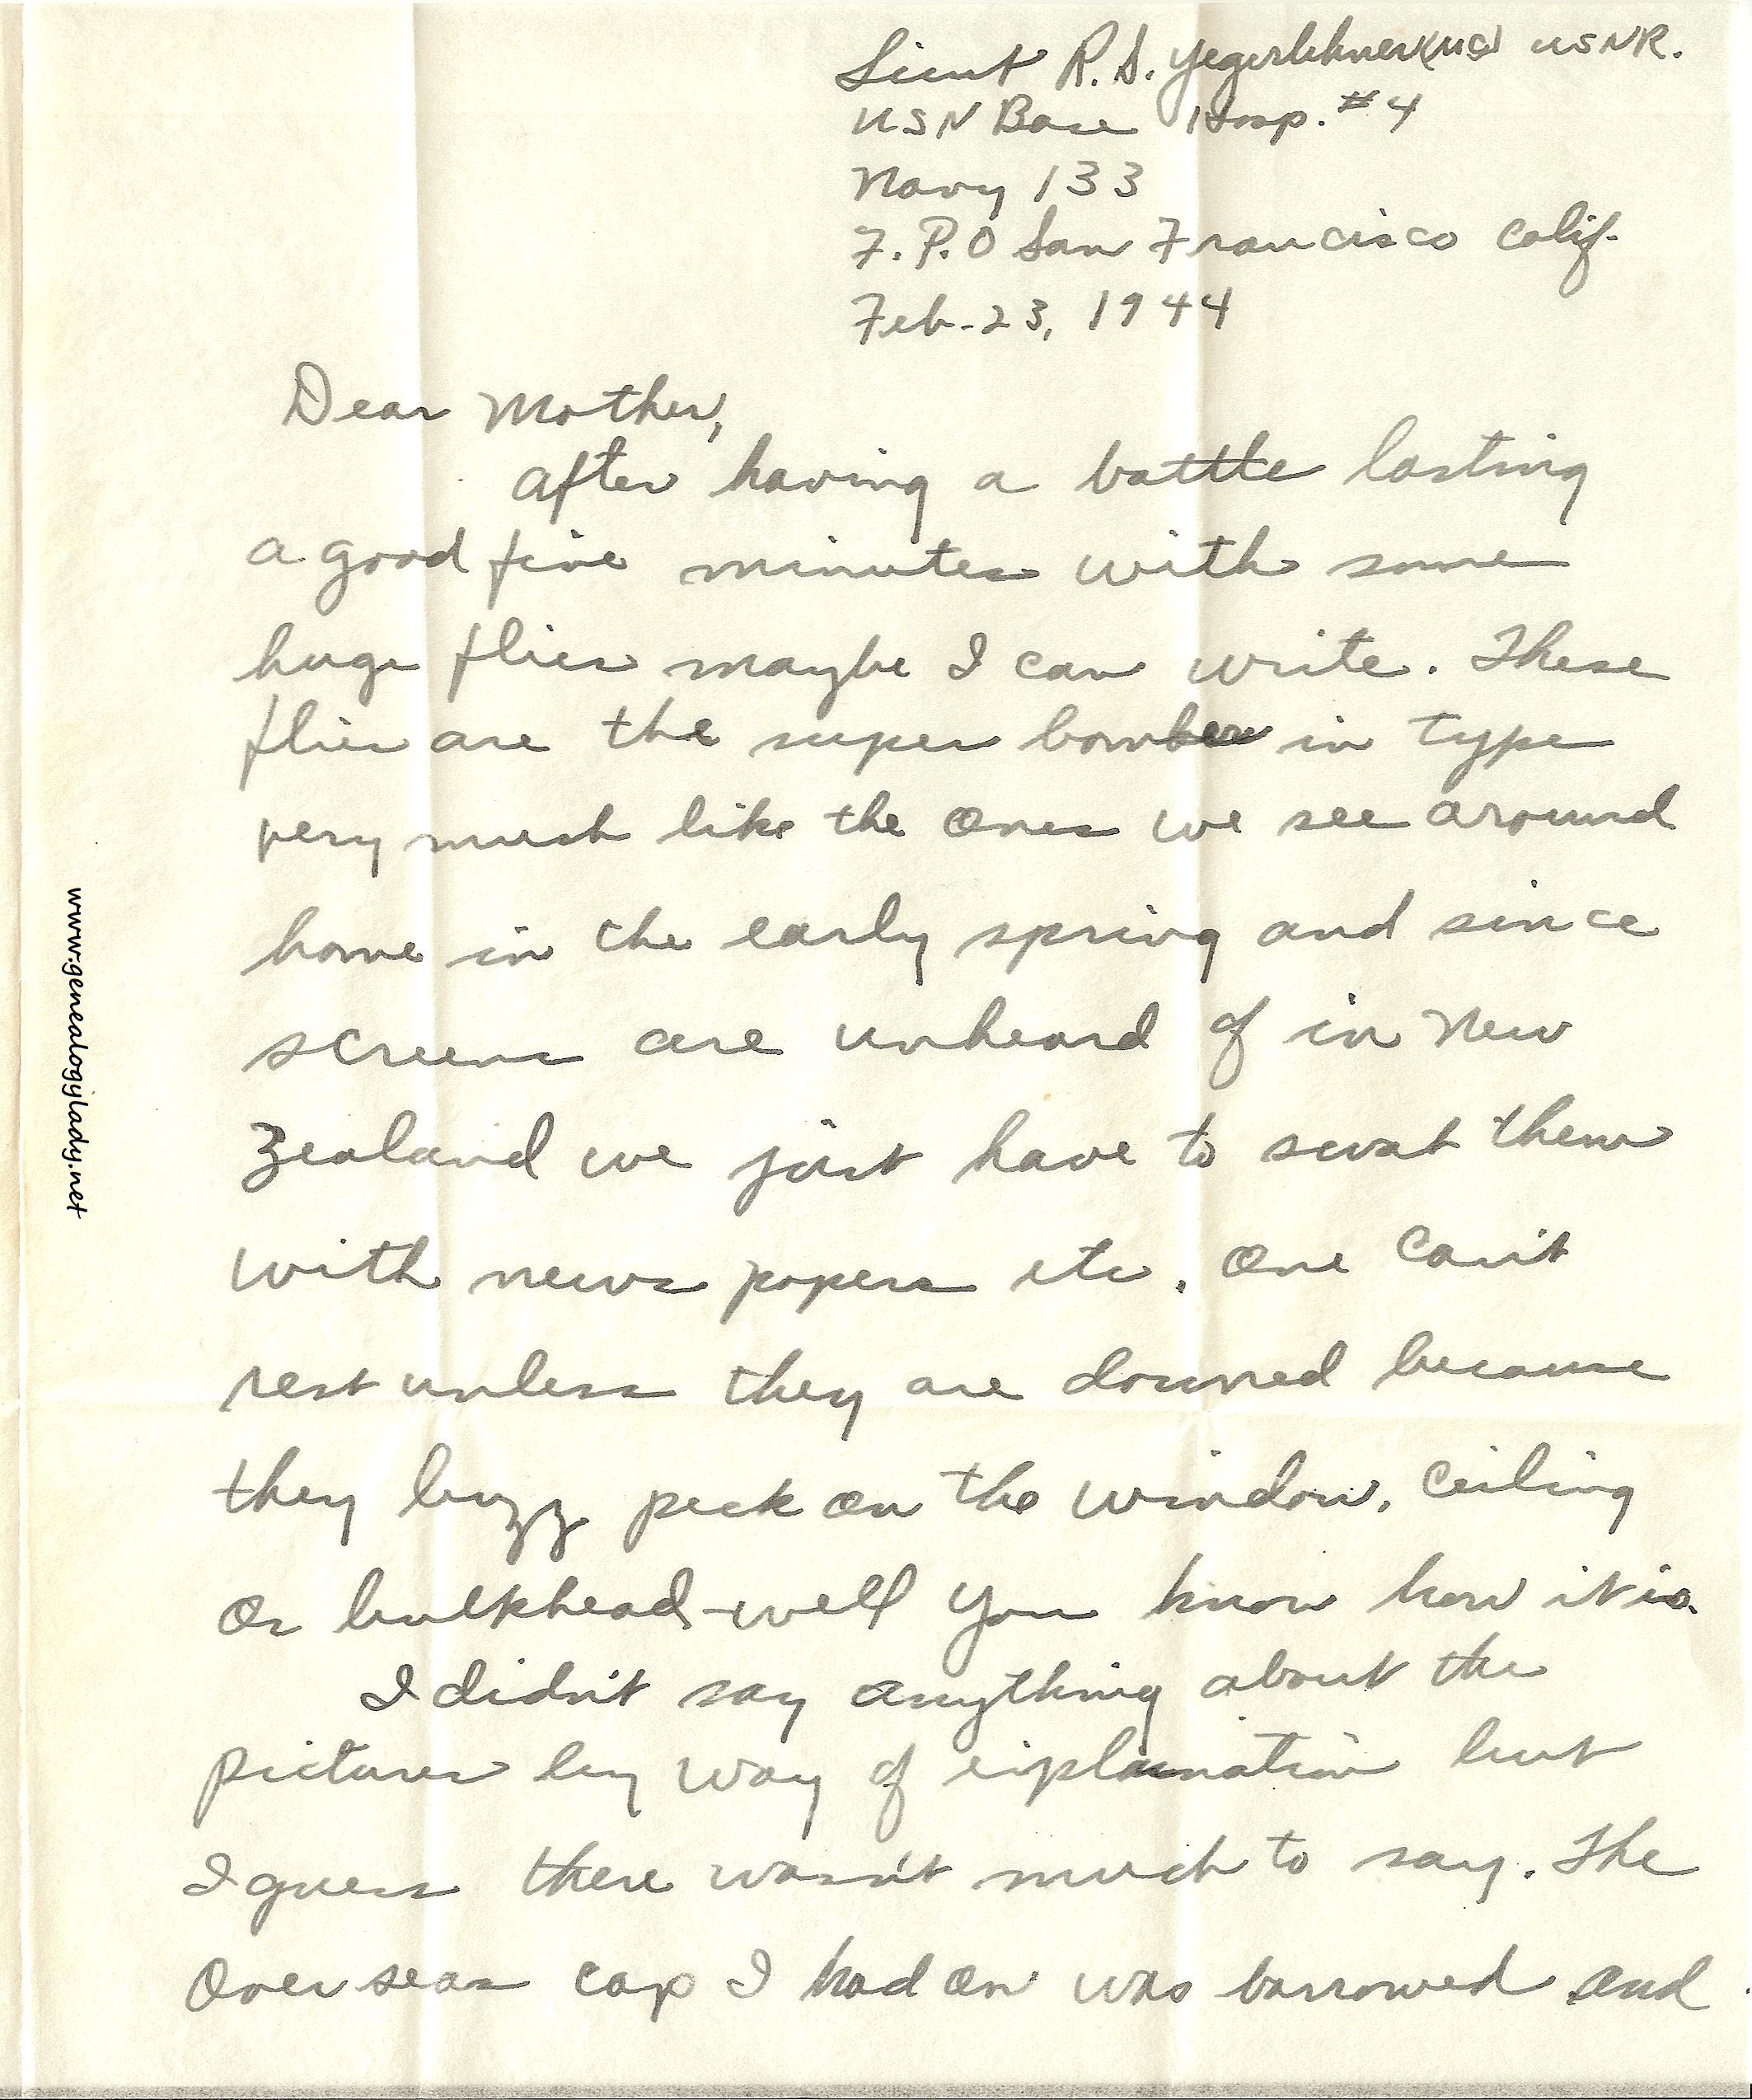 Lieut R.S. Yegerlehner(MC) USNR.
USN Base Hosp. #4
Navy 133
F.P.O San Francisco Calif.
Feb. 23, 1944
Dear Mother,
After having a battle lasting
a good five minutes with some
huge flies maybe I can write. These
flies are the super bomber in type
very much like the ones we see around
home in the early spring and since
screens are unheard of in New
Zealand we just have to swat them
with news papers etc. One can't
rest unless they are downed because
they buzz peck on the window, ceiling
or bulkhead-well you know how it is.
I didn't say anything about the
pictures by way of explaination but
I guess there wasn't much to say. The
overseas cap I had on was borrowed and
www.genealogylady.net